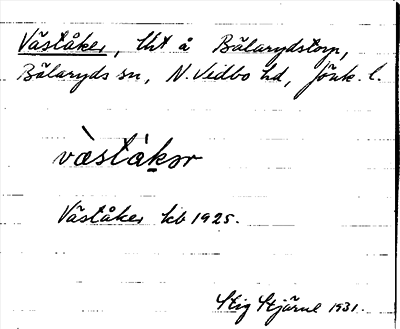 Väståker, lht å Bälarydstorp,
Bälaryds sn, N. Vedbo hd, Jönk. l.
vàstàkər
Väståker kb 1925.
Stig Stjärne 1931.